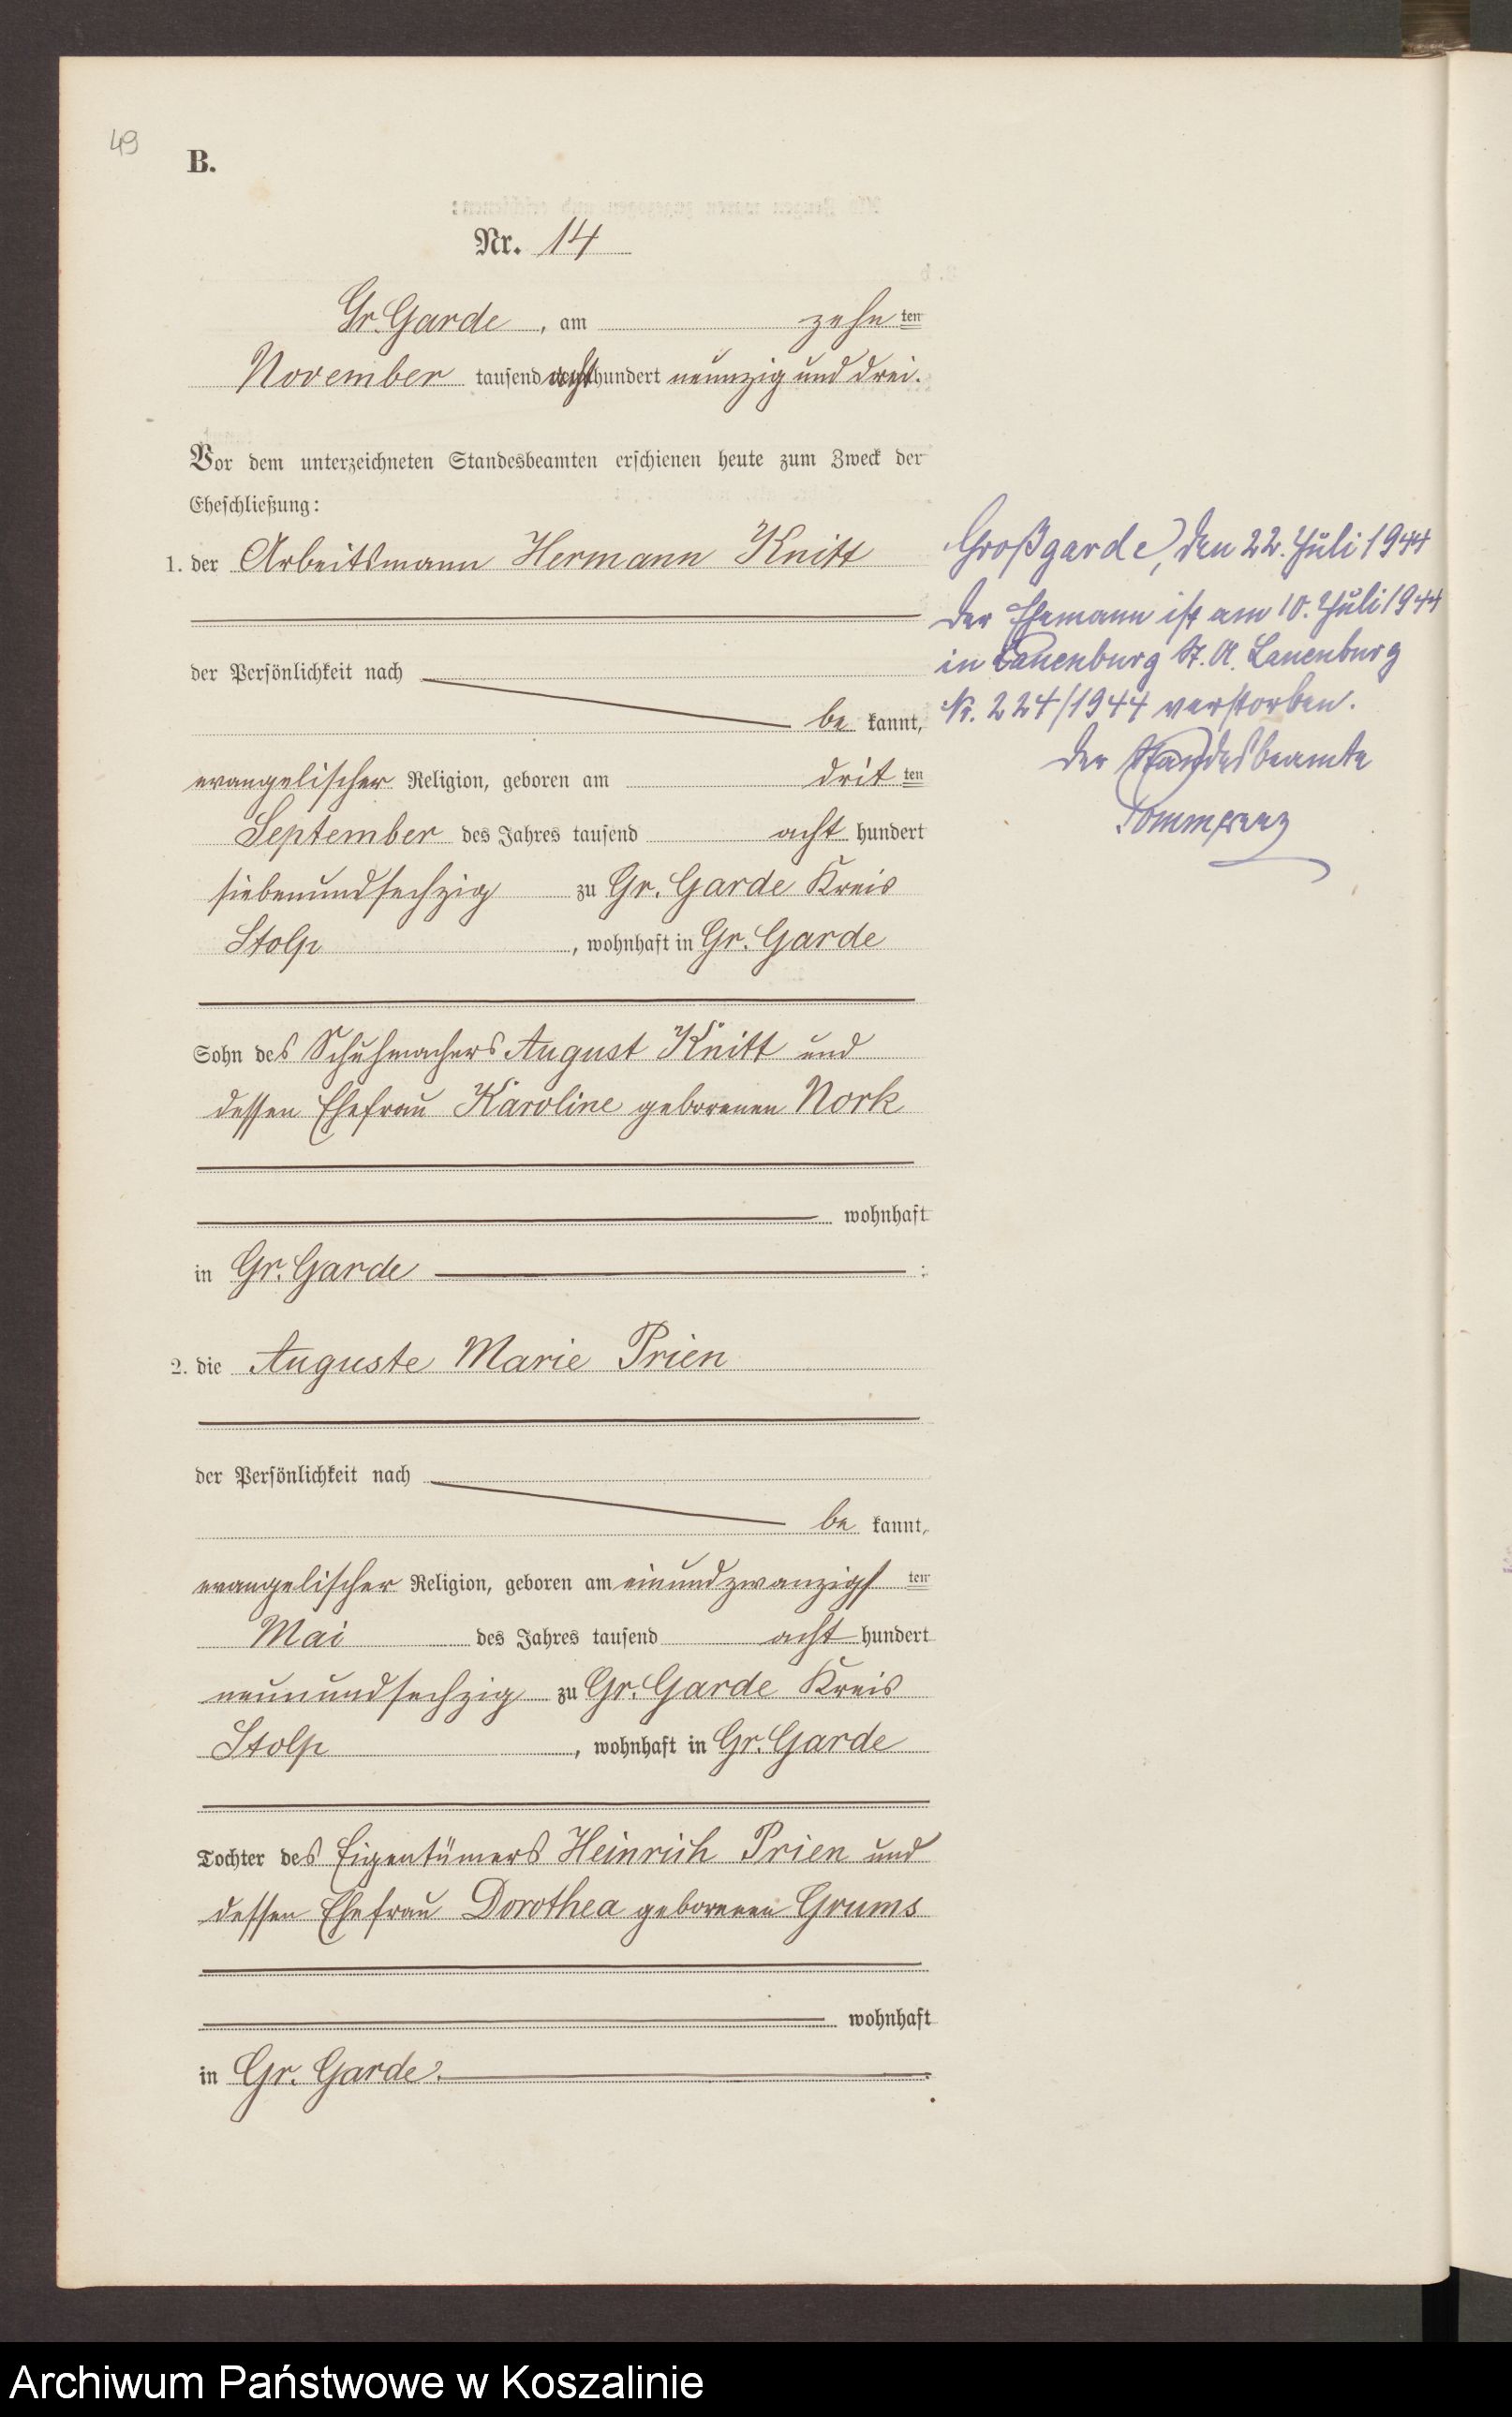 49
B.
Nr. 14
Gr. Garde, am zehnten
November tausend achthundert neunzig und drei.
Vor dem unterzeichneten Standesbeamten erschienen heute zum Zweck der
Eheschließung:
1. der Arbeitsmann Hermann Knitt
der Persönlichkeit nach
be kannt,
evangelischer Religion, geboren am dritten
September des Jahres tausend acht hundert
siebenundsechzig zu Gr. Garde Kreis
Stolp, wohnhaft in Gr. Garde
Sohn des Schuhmachers August Knitt und
dessen Ehefrau Karoline geborenen Nork
wohnhaft
in Gr. Garde :
2. die Auguste Marie Prien
der Persönlichkeit nach
be kannt,
evangelischer Religion, geboren am einundzwanzigsten
Mai des Jahres tausend acht hundert
neunundsechzig zu Gr. Garde Kreis
Stolp, wohnhaft in Gr. Garde
Tochter des Eigentümers Heinrich Prien und
dessen Ehefrau Dorothea geborenen Grums
wohnhaft
in Gr. Garde.
Großgarde, den 22. Juli 1944
Der Ehemann ist am 10. Juli 1944
in Lauenburg St. A. Lauenburg
Nr. 224/1944 verstorben.
Der Standesbeamte
Pommerenz
Archiwum Państwowe w Koszalinie